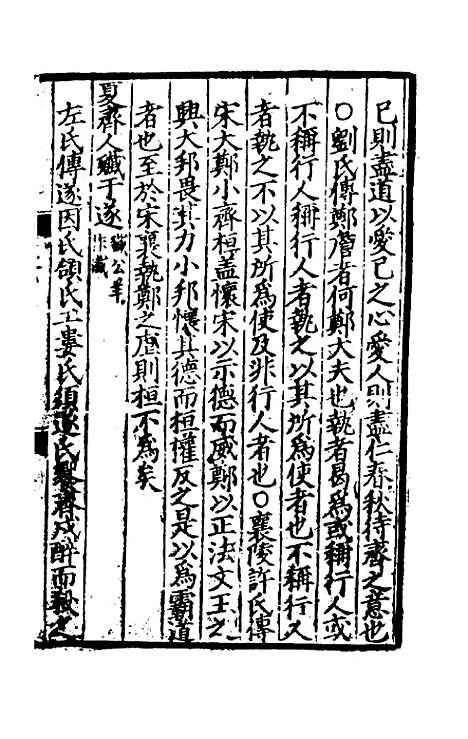 已則盡道以愛己之心愛人則盡仁春秋待齊之意也
〇劉氏傳鄭詹者何鄭大夫也執者曷爲或稱行人或
不稱行人稱行人者執之以其所爲使者也不稱行人
者執之不以其所爲使及非行人者也〇襄陵許氏傳
宋大鄭小齊桓盖懷宋以示德而威鄭以正法文王之
興大邦畏其力小邦懷其德而桓權反之是以爲霸道
者也至於宋襄執鄭之虐則桓不爲矣
夏齊人殱于遂殱公羊作瀸
左氏傳遂因氏頜氏工婁氏須遂氏饗齊戍醉而殺之